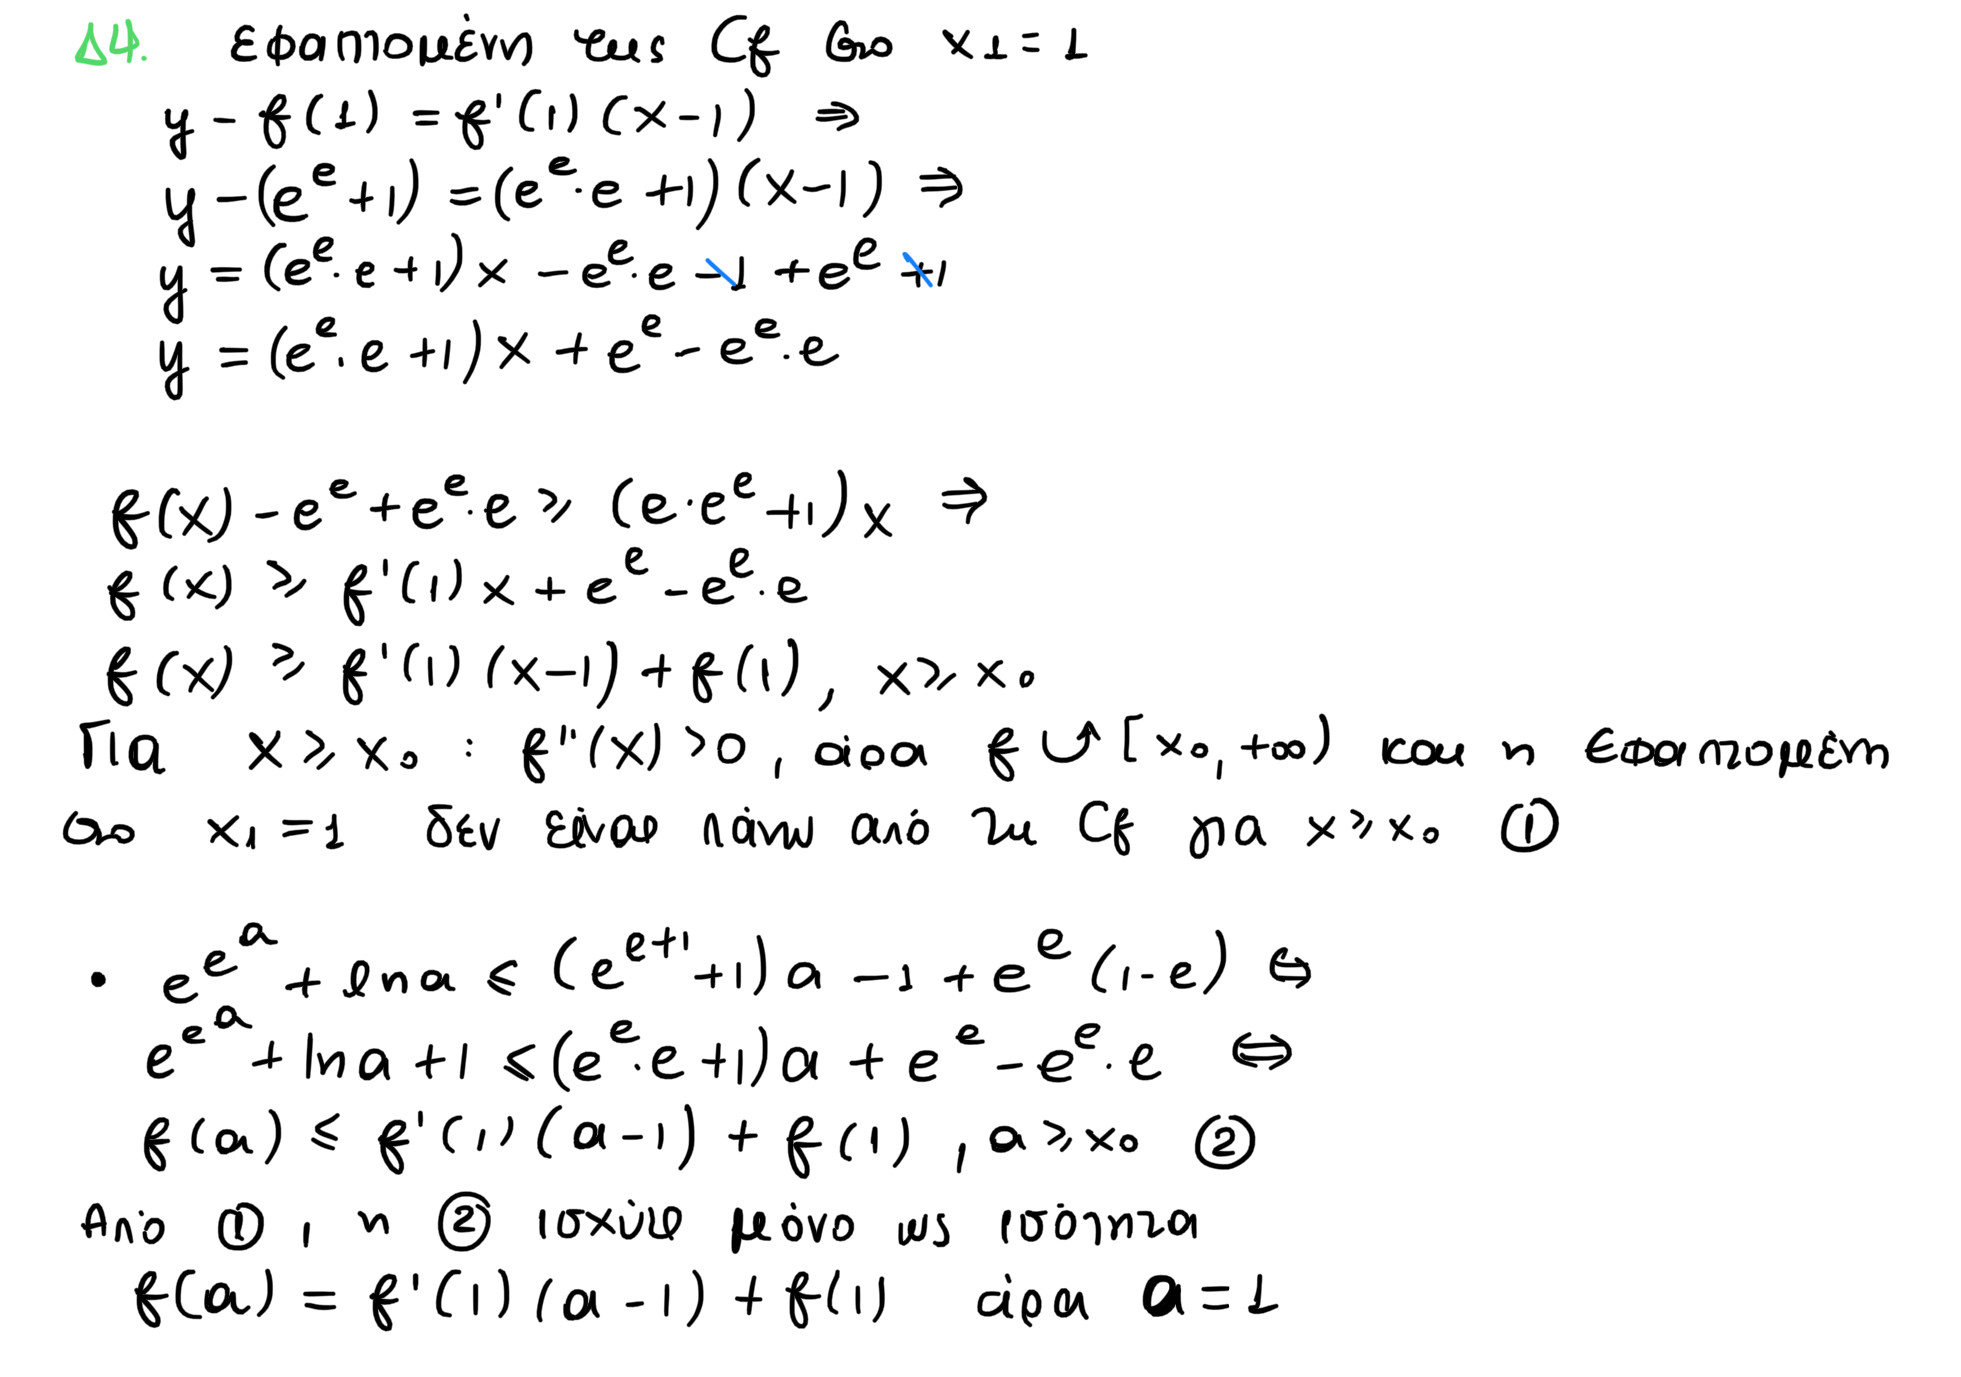 Δ4. εφαπτομένη της Cf στο x1 = 1
y - f(1) = f'(1)(x-1) ⇒
y - (e^e + 1) = (e^e · e + 1)(x-1) ⇒
y = (e^e · e + 1)x - e^e · e - 1 + e^e + 1
y = (e^e · e + 1)x + e^e - e^e · e
f(x) - e^e + e^e · e ≥ (e · e^e + 1)x ⇒
f(x) ≥ f'(1)x + e^e - e^e · e
f(x) ≥ f'(1)(x-1) + f(1), x ≥ x₀
Για x ≥ x₀ : f''(x) > 0, άρα f ⤻ [x₀, +∞) και η εφαπτομένη
στο x₁ = 1 δεν είναι πάνω από τη Cf για x ≥ x₀ ①
• e^{e^a} + ln a ≤ (e^{e+1} + 1)a - 1 + e^e (1-e) ⇔
e^{e^a} + ln a + 1 ≤ (e^e · e + 1)a + e^e - e^e · e ⇔
f(a) ≤ f'(1)(a-1) + f(1), a ≥ x₀ ②
Από ①, η ② ισχύει μόνο ως ισότητα
f(a) = f'(1)(a-1) + f(1) άρα a = 1